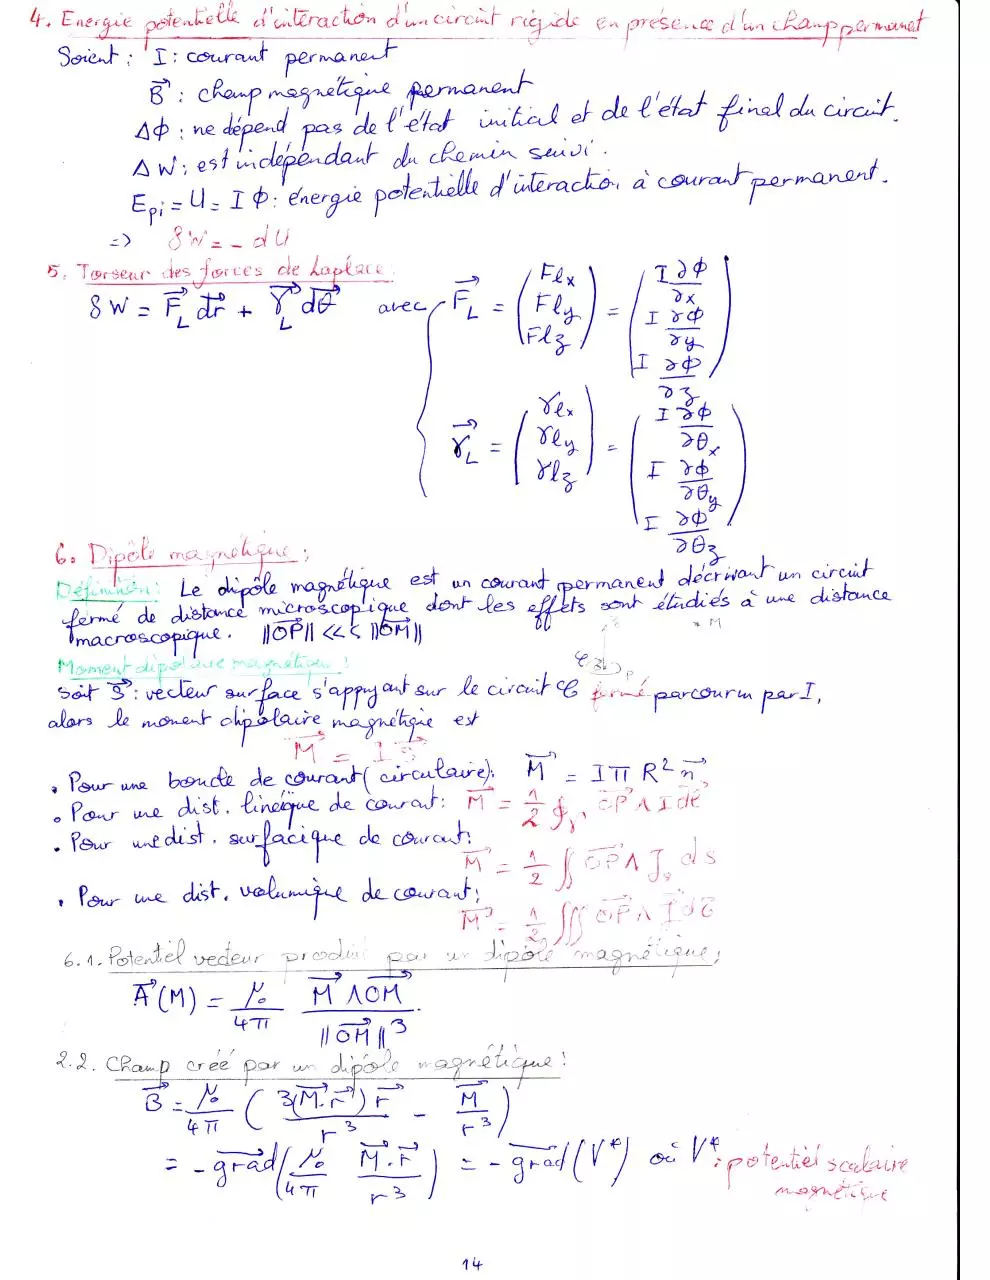 4. Energie potentielle d'interaction d'un circuit rigide en présence d'un champ permanent
Soient : I : courant permanent
B⃗ : champ magnétique permanent
ΔΦ : ne dépend pas de l'état initial et de l'état final du circuit.
ΔW : est indépendant du chemin suivi.
Epi = U = I Φ : énergie potentielle d'interaction à courant permanent.
=> δW = - dU
5. Torseur des forces de Laplace.
δW = F⃗_L dr⃗ + γ⃗_L dθ⃗ avec { F⃗_L = (Flx Fly Flz) = (I ∂Φ/∂x I ∂Φ/∂y I ∂Φ/∂z)
γ⃗_L = (γlx γly γlz) = (I ∂Φ/∂θx I ∂Φ/∂θy I ∂Φ/∂θz)
6. Dipôle magnétique :
Définition : Le dipôle magnétique est un courant permanent décrivant un circuit
fermé de distance microscopique dont les effets sont étudiés à une distance
macroscopique. ||OP⃗|| <<< ||OM⃗||
× M
P
Moment dipolaire magnétique :
Soit S⃗ : vecteur surface s'appuyant sur le circuit C fermé parcouru par I,
alors le moment dipolaire magnétique est
M⃗ = I S⃗
• Pour une boucle de courant (circulaire) : M⃗ = I π R² n⃗
• Pour une dist. linéique de courant : M⃗ = 1/2 ∮ OP⃗ ∧ I dℓ⃗
• Pour une dist. surfacique de courant : M⃗ = 1/2 ∬ OP⃗ ∧ J⃗s ds
• Pour une dist. volumique de courant : M⃗ = 1/2 ∭ OP⃗ ∧ J⃗ dτ
6.1. Potentiel vecteur produit par un dipôle magnétique :
A⃗(M) = μ₀/4π (M⃗ ∧ OM⃗)/||OM⃗||³.
2.2. Champ créé par un dipôle magnétique :
B⃗ = μ₀/4π ( 3(M⃗.r⃗)r⃗/r³ - M⃗/r³ )
= - grad⃗(μ₀/4π M⃗.r⃗/r³) = - grad⃗(V*) où V* : potentiel scalaire
magnétique
14